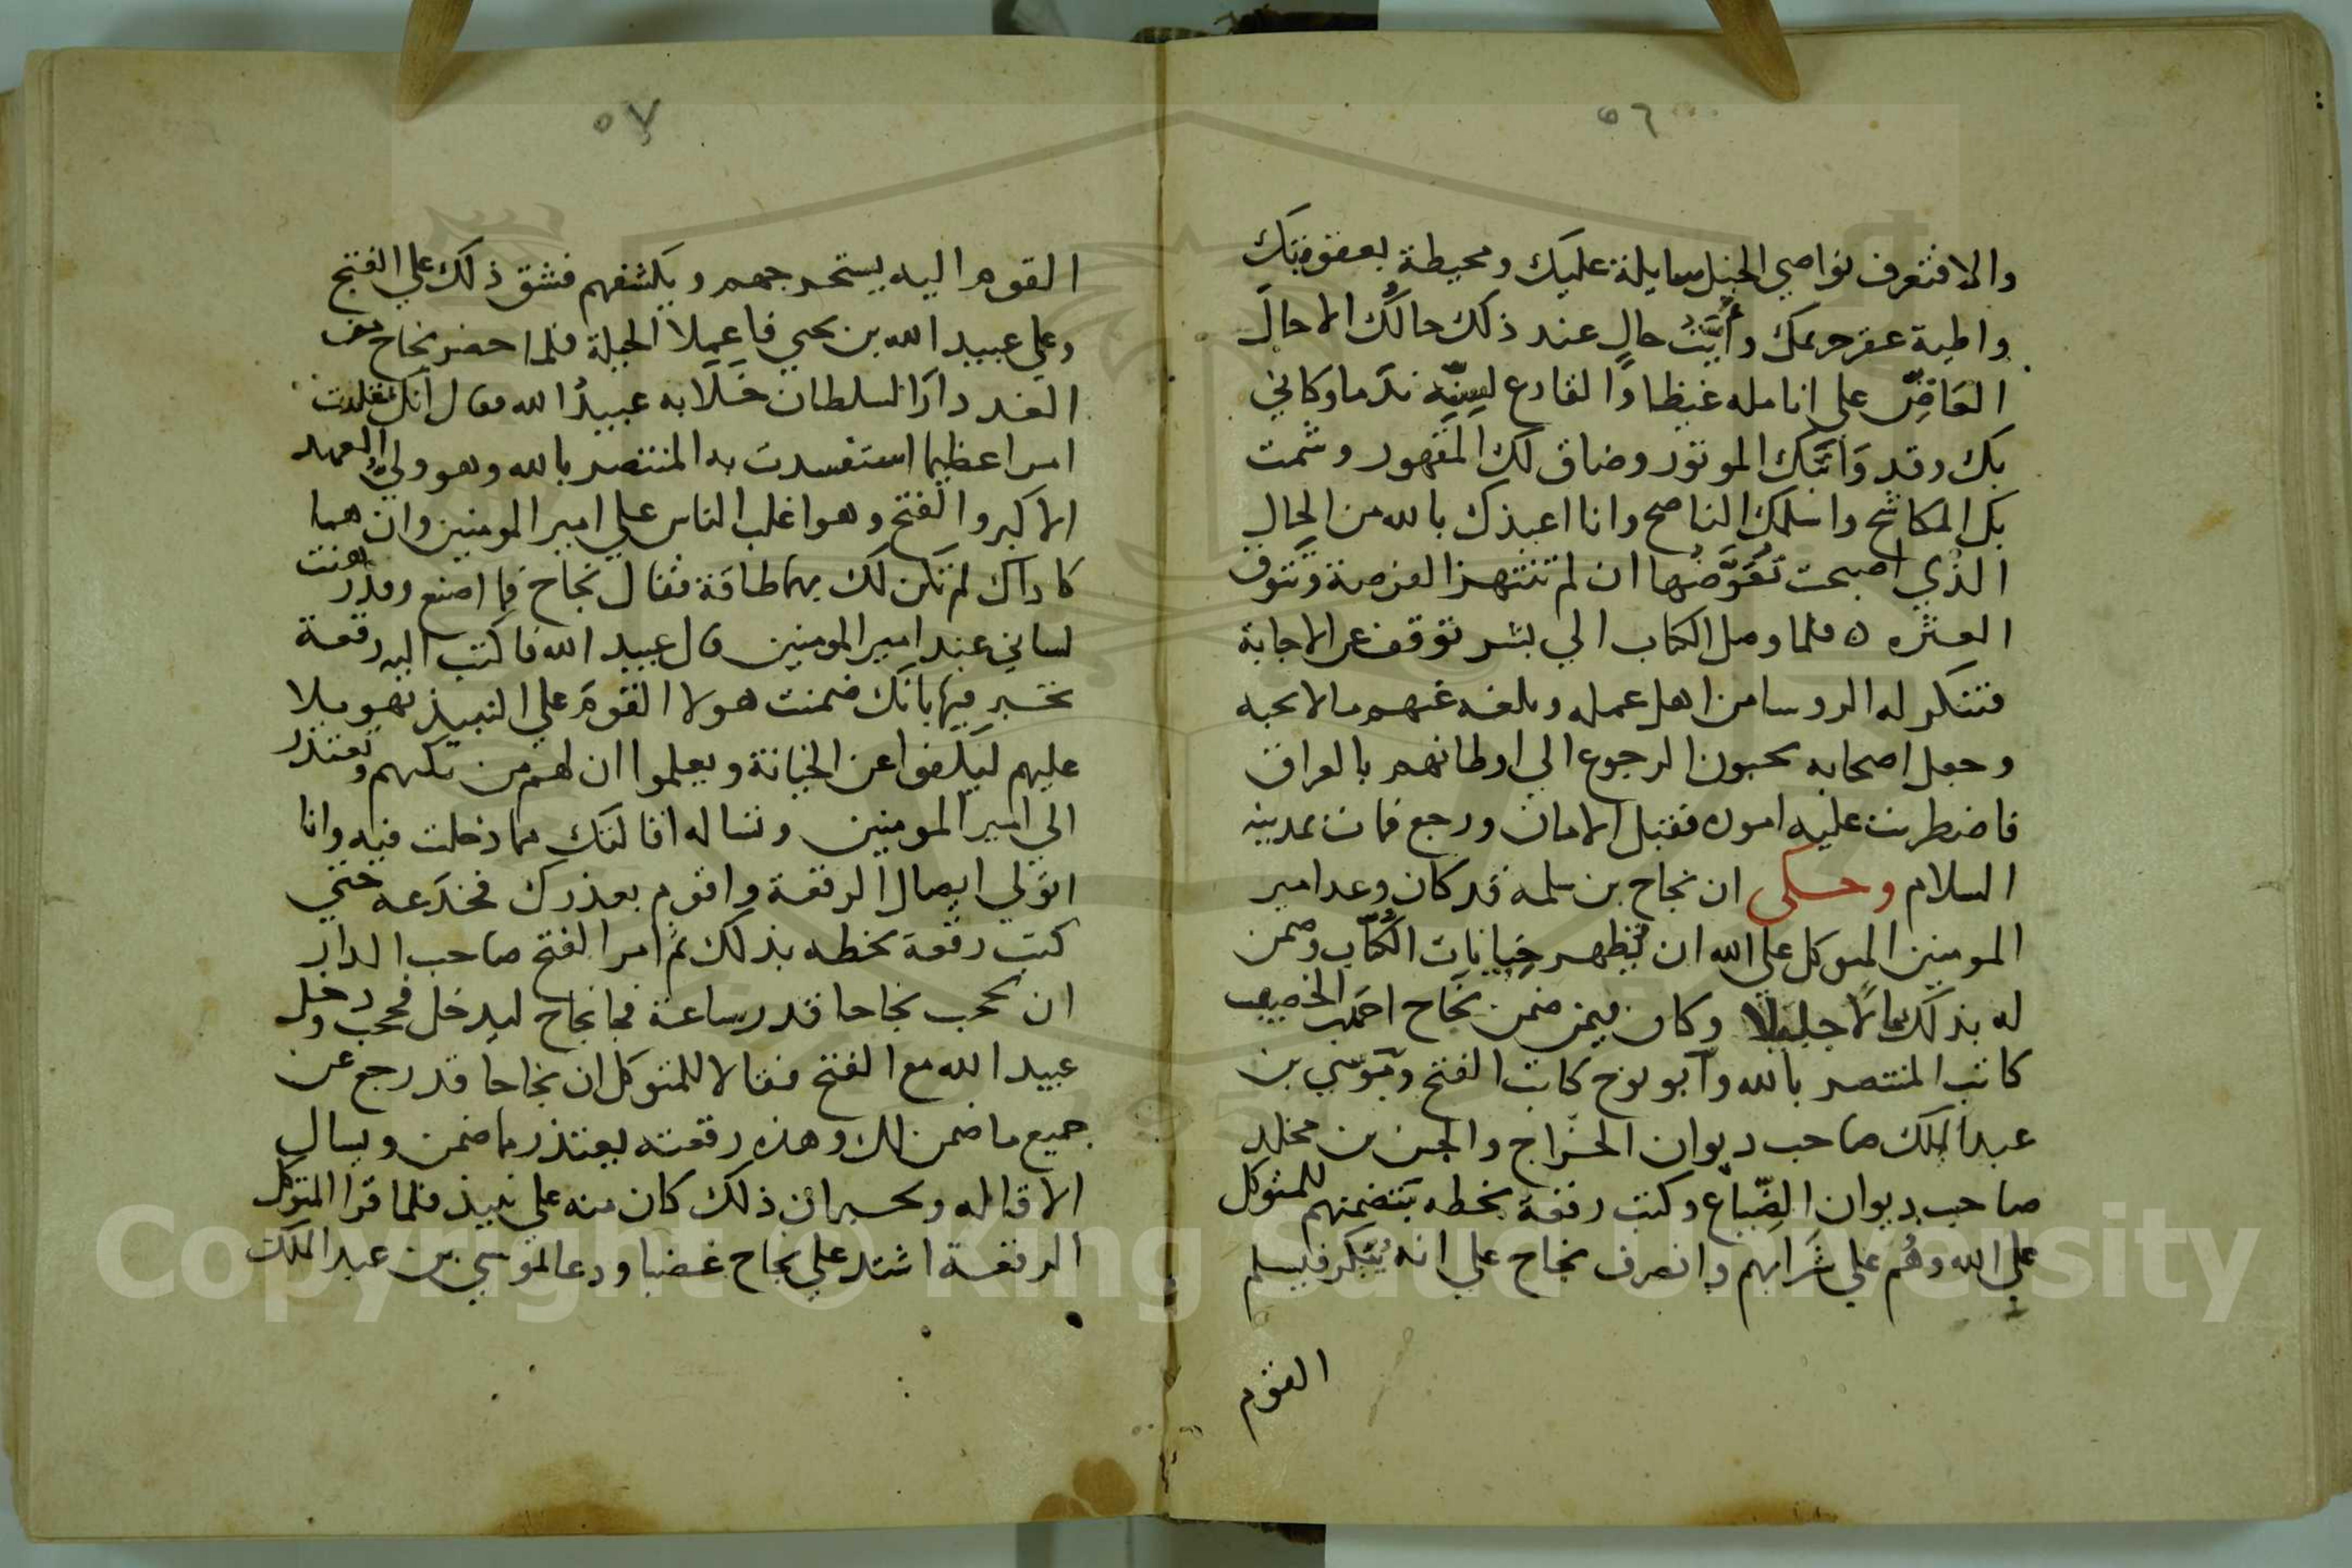 ٥٦
والا فتعرف نواصي الخيل سايلة عليك ومحيطة بعقوتك
واطية عقر حرمك وأيَّتُ حالٍ عند ذلك حالُك الا حال
العَاضِّ على انامله غيظا وَالقارع لسِنِّه ندما وكاني
بك وقد وَاثبَك الموتور وضاق لك المقهور وشمت
بك المكاشح واسلمك الناصح وانا اعيذك بالله من الحال
الذي اصبحت تعَوَّضُها ان لم تنتهز الفرصة وتتوق
العثره ه فلما وصل الكتاب الي بشر توقف عن الاجابة
فتنكر له الروسا من اهل عمله وبلغه عنهم ما لا يحبه
وجعل اصحابه يحبون الرجوع الي اوطانهم بالعراق
فاضطربت عليه اموره فقبل الامان ورجع فمات بمدينه
السلام وحكى ان نجاح بن سلمه قد كان وعد امير
المومنين المتوكل علي الله ان يُظهر خيانات الكُتّاب وضمن
له بذلك مالًا جليلا وكان فيمن ضمن نجَاح احمد الخصيب
كاتب المنتصر بالله وابو نوح كاتب الفتح ومُوسي بن
عبد الملك صاحب ديوان الخراج والحسن بن مخلد
صاحب ديوان الضّياع وكتب رقعة بخطه بتضمنهم للمتوكل
علي الله وهُم علي شَرَابهم وانصرف نجاح علي انه يُبَكر فيسلم
القوم
٥٧
القوم اليه يستخرجهم ويكشفهم فشق ذلك علي الفتح
وعلي عبيد الله بن يحيي فاعملا الحيلة فلما حضر نجاح من
الغد دارَ السلطان خَلَا به عبيدُ الله فقال انك تقلدت
امرا عظيما استفسدت به المنتصر بالله وهو ولي العهد
الاكبر والفتح وهو اغلب الناس علي امير المومنين وان هما
كاداك لم تكن لك بهما طاقة فقال نجاح فما اصنع وقد رهنت
لساني عند امير المومنين قال عبيد الله فاكتب اليه رقعة
تخبر فيها بانك ضمنت هولا القومَ علي النبيذ تهويلا
عليهم ليَكفوا عن الخيانة ويعلموا ان لهم من يكبهم وتعتذر
الي امير المومنين وتساله اقالتك مما دخلت فيه وانا
اتولي ايصال الرقعة واقوم بعذرك فخدَعه حتي
كتب رقعة بخطه بذلك ثم امر الفتح صاحب الدار
ان يحجب نجاحا قدر ساعة فجا نجاح ليدخل فحجب ودخل
عبيد الله مع الفتح فقالا للمتوكل ان نجاحا قد رجع عن
جميع ما ضمن لك وهذه رقعته يعتذر مما ضمن ويسال
الاقاله ويخبر ان ذلك كان منه علي نبيذ فلما قرا المتوكل
الرقعة اشتد علي نجاح غضبا ودعا لموسي بن عبد الملك
Copyright © King Saud University